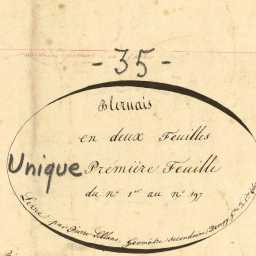 - 35 -
Blernais
en deux Feuilles
Unique Première Feuille
du n° 1er au n° 197
Levée par Pierre Géomètre secondaire